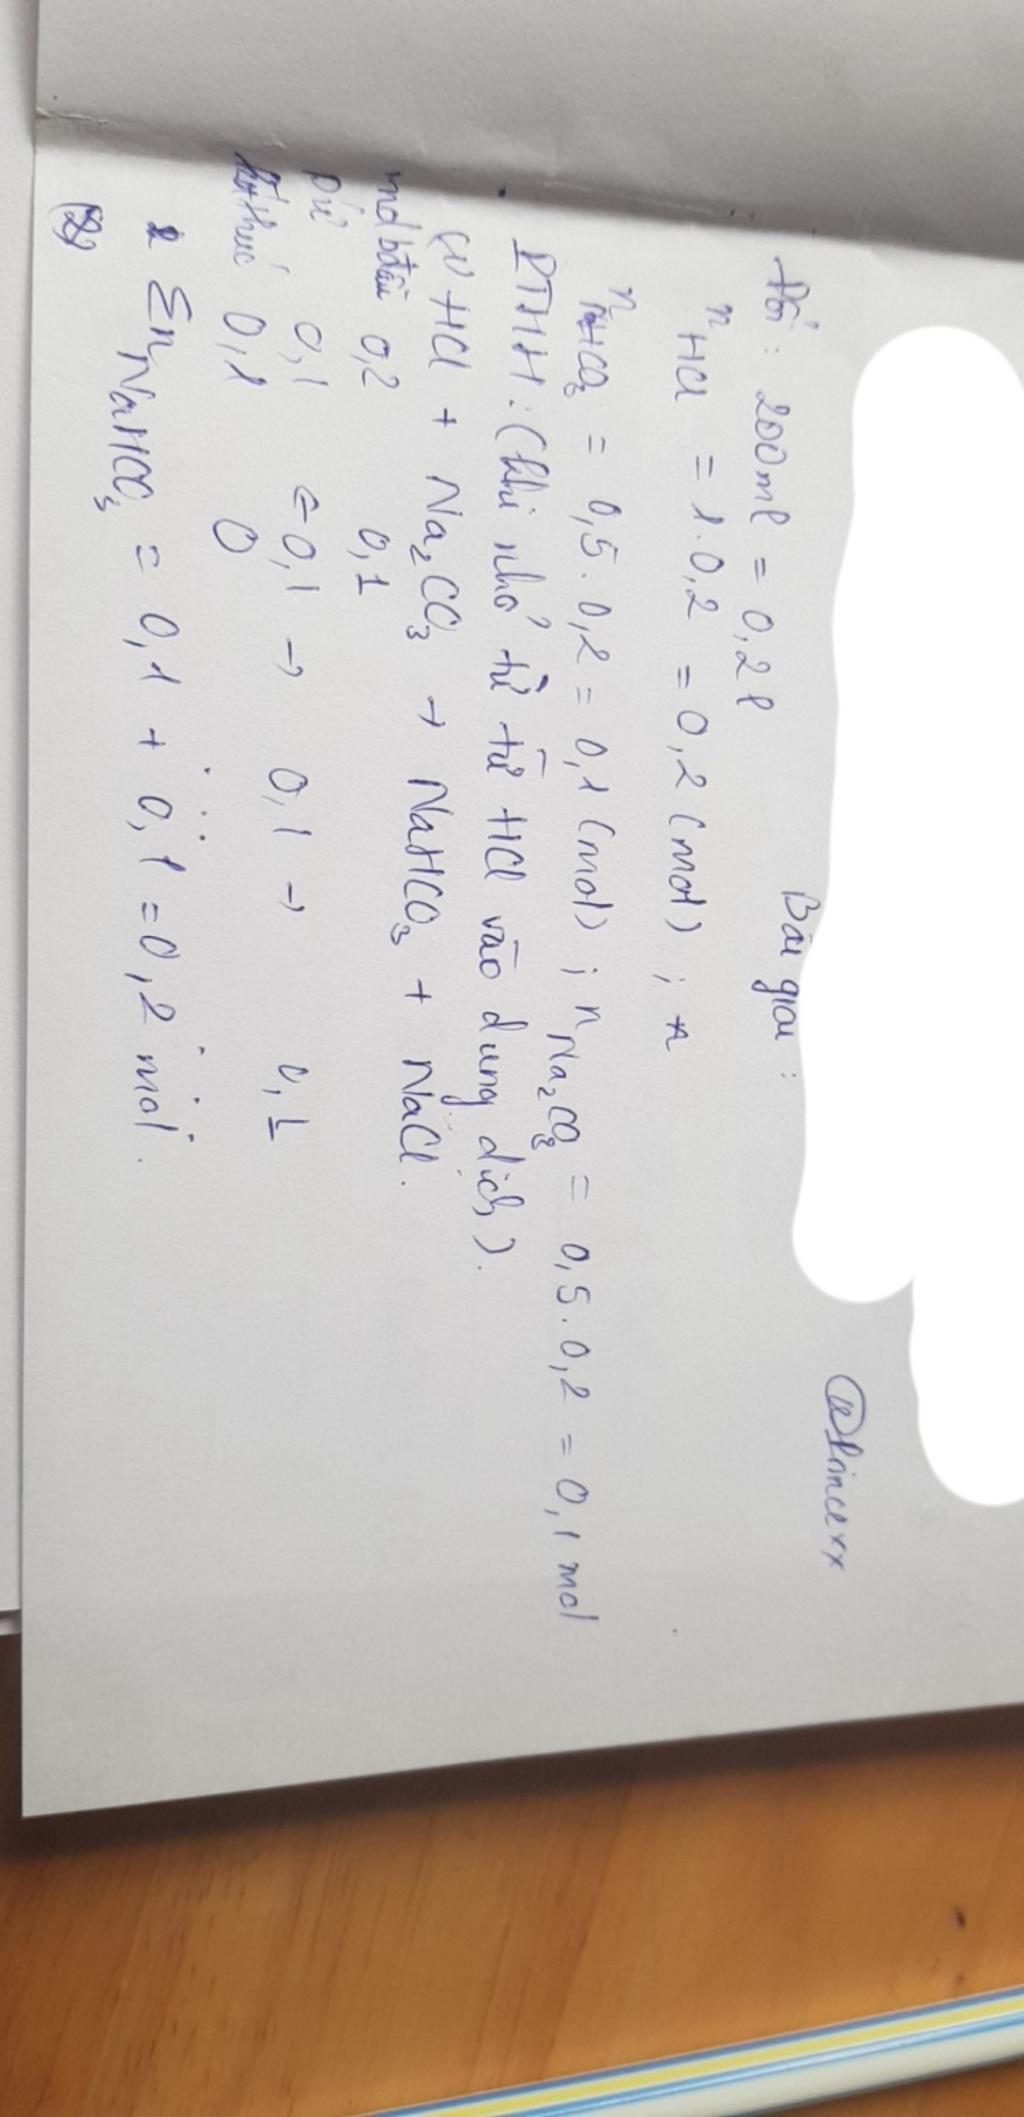 @Princerx
Bài giải :
Đổi : 200ml = 0,2l
nHCl = 1.0,2 = 0,2 (mol) ;
nNaHCO₃ = 0,5.0,2 = 0,1 (mol) ; nNa₂CO₃ = 0,5.0,2 = 0,1 mol
PTHH : (khi nhỏ từ từ HCl vào dung dịch).
(1) HCl + Na₂CO₃ → NaHCO₃ + NaCl.
mol bđầu 0,2 0,1
pứ 0,1 ← 0,1 → 0,1 → 0,1
kthúc 0,1 0
Σn NaHCO₃ = 0,1 + 0,1 = 0,2 mol.
(2)